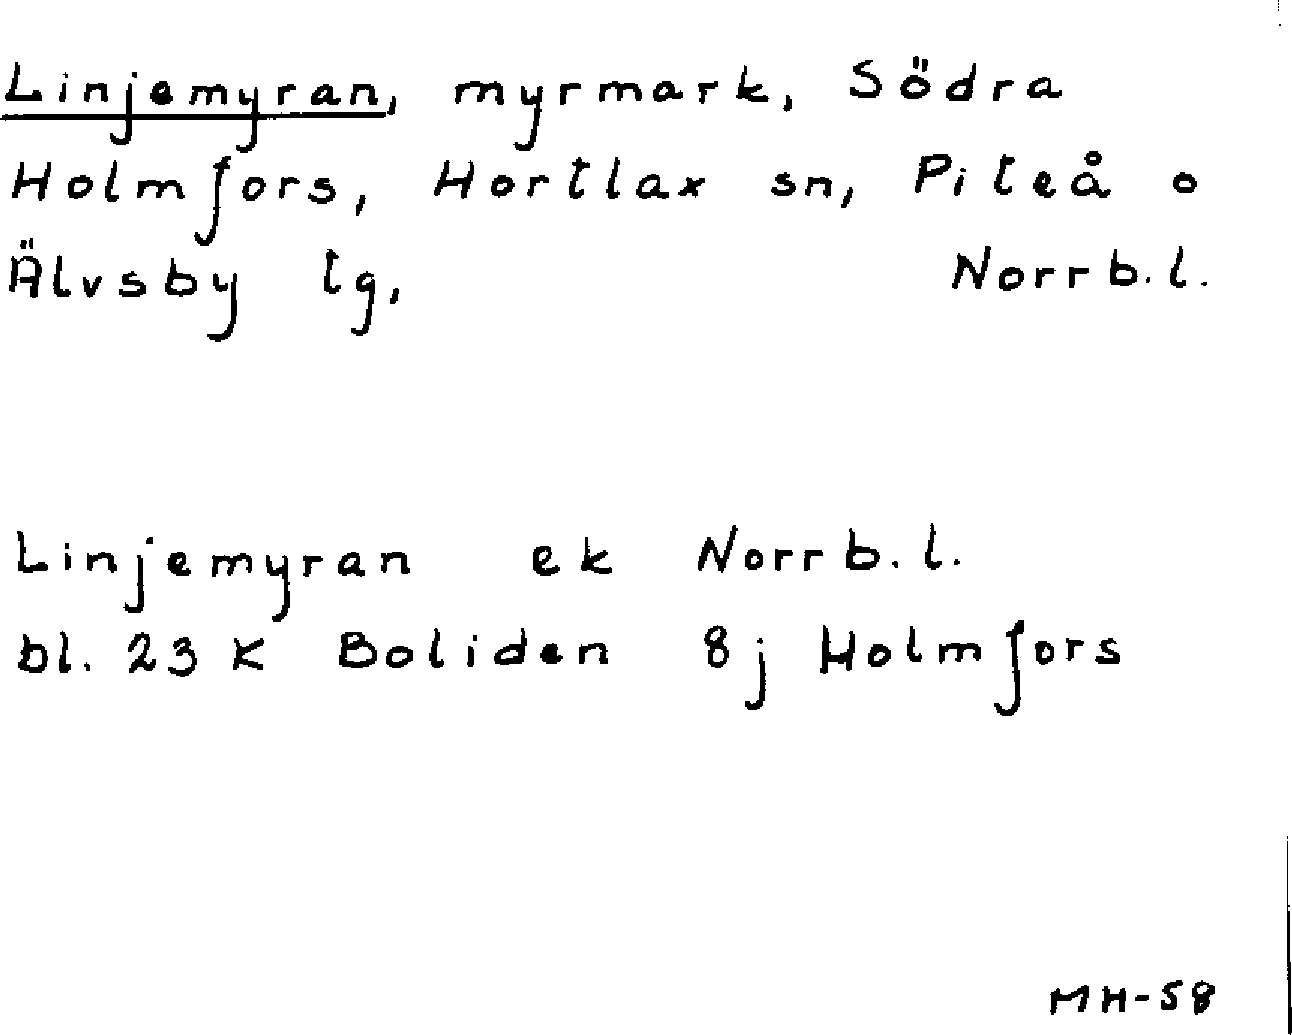 Linjemyran, myrmark, Södra
Holmfors, Hortlax sn, Piteå o
Älvsby tg, Norrb.l.
Linjemyran ek Norrb.l.
bl. 23 K Boliden 8j Holmfors
MH-58